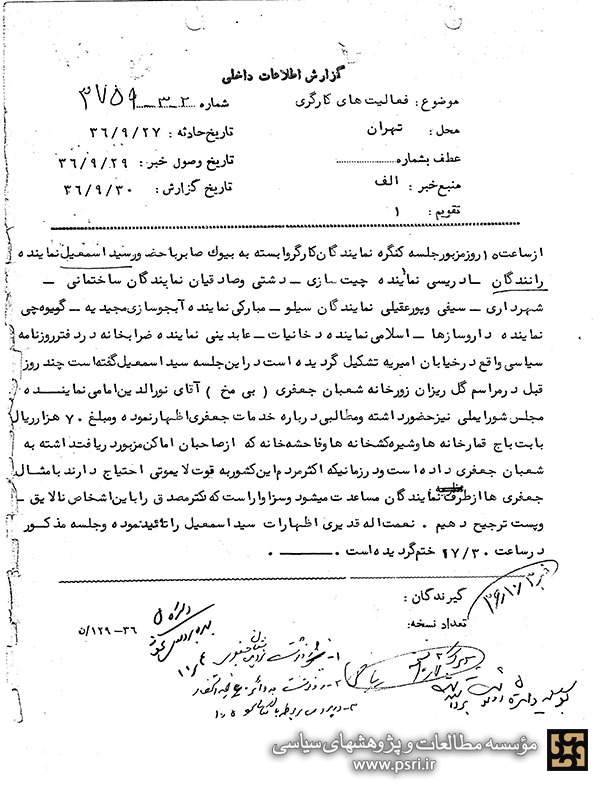 گزارش اطلاعات داخلی
موضوع : فعالیت های کارگری
شماره ۳۲ـ۳۷۵۹
محل : تهران
تاریخ حادثه : ۳۶/۹/۲۷
عطف بشماره
تاریخ وصول خبر : ۳۶/۹/۲۹
منبع خبر : الف
تاریخ گزارش : ۳۶/۹/۳۰
تقویم : ۱
از ساعت ۱۵ روز مزبور جلسه کنگره نمایندگان کارگر وابسته به بیوک صابر با حضور سید اسمعیل نماینده
رانندگان ــ ادریسی نماینده چیت سازی ــ دشتی و صادقیان نمایندگان ساختمانی ــ
شهرداری ــ سیفی و پور عقیلی نمایندگان سیلو ــ مبارکی نماینده آبجوسازی مجیدیه ــ گویوه چی
نماینده دارو سازها ــ اسلامی نماینده دخانیات ــ عابدینی نماینده ضرابخانه در دفتر روزنامه
سیاسی واقع در خیابان امیریه تشکیل گردیده است در این جلسه سید اسمعیل گفته است چند روز
قبل در مراسم گل ریزان زورخانه شعبان جعفری ( بی مخ ) آقای نورالدین امامی نماینده
مجلس شورایملی نیز حضور داشته و مطالبی درباره خدمات جعفری اظهار نموده و مبلغ ۷۰ هزار ریال
بابت باج قمارخانه ها و شیره کشخانه ها و فاحشه خانه که از صاحبان اماکن مزبور دریافت داشته به
شعبان جعفری داده است و در زمانیکه اکثر مردم این کشور به قوت لایموتی احتیاج دارند با مثال
جعفری ها از طرف نمایندگان مجلس مساعدت میشود و سزاوار است که دکتر مصدق را با این اشخاص نالایق ــ
و پست ترجیح دهیم . نعمت اله قدیری اظهارات سید اسمعیل را تائید نموده و جلسه مذکور
در ساعت ۱۷/۳۰ ختم گردیده است .
گیرندگان :
تعداد نسخه :
۵/۱۲۹-۳۶
موسسه مطالعات و پژوهشهای سیاسی
www.psri.ir